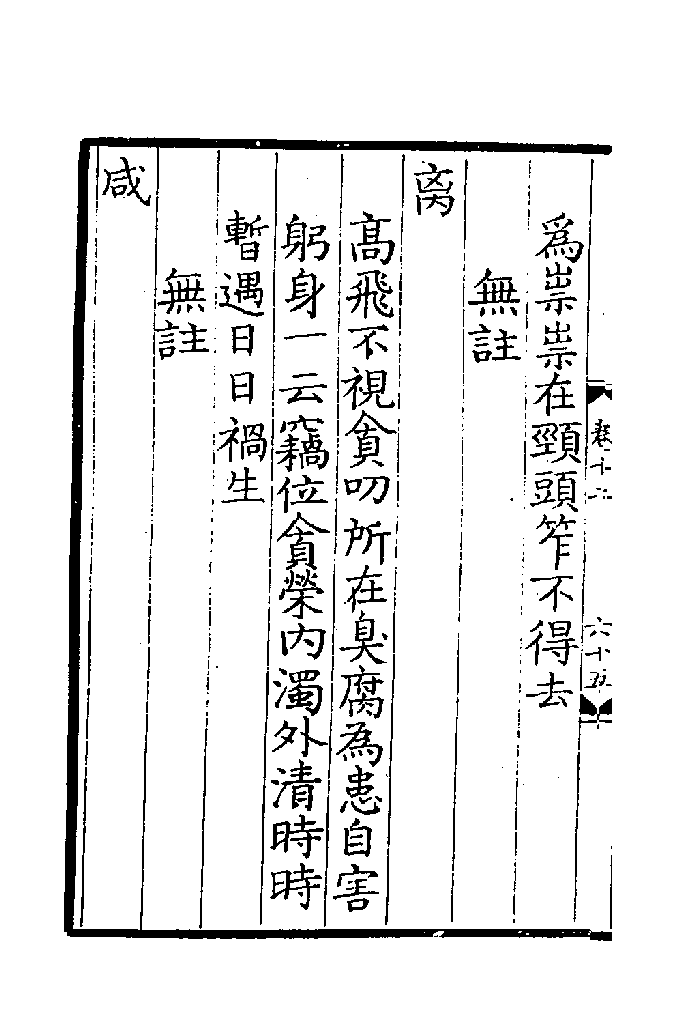 爲祟祟在頸頭笮不得去
無註
离
髙飛不視貪叨所在臭腐為患自害
躬身一云竊位貪榮内濁外清時時
暫遇日日禍生
無註
咸
六十五